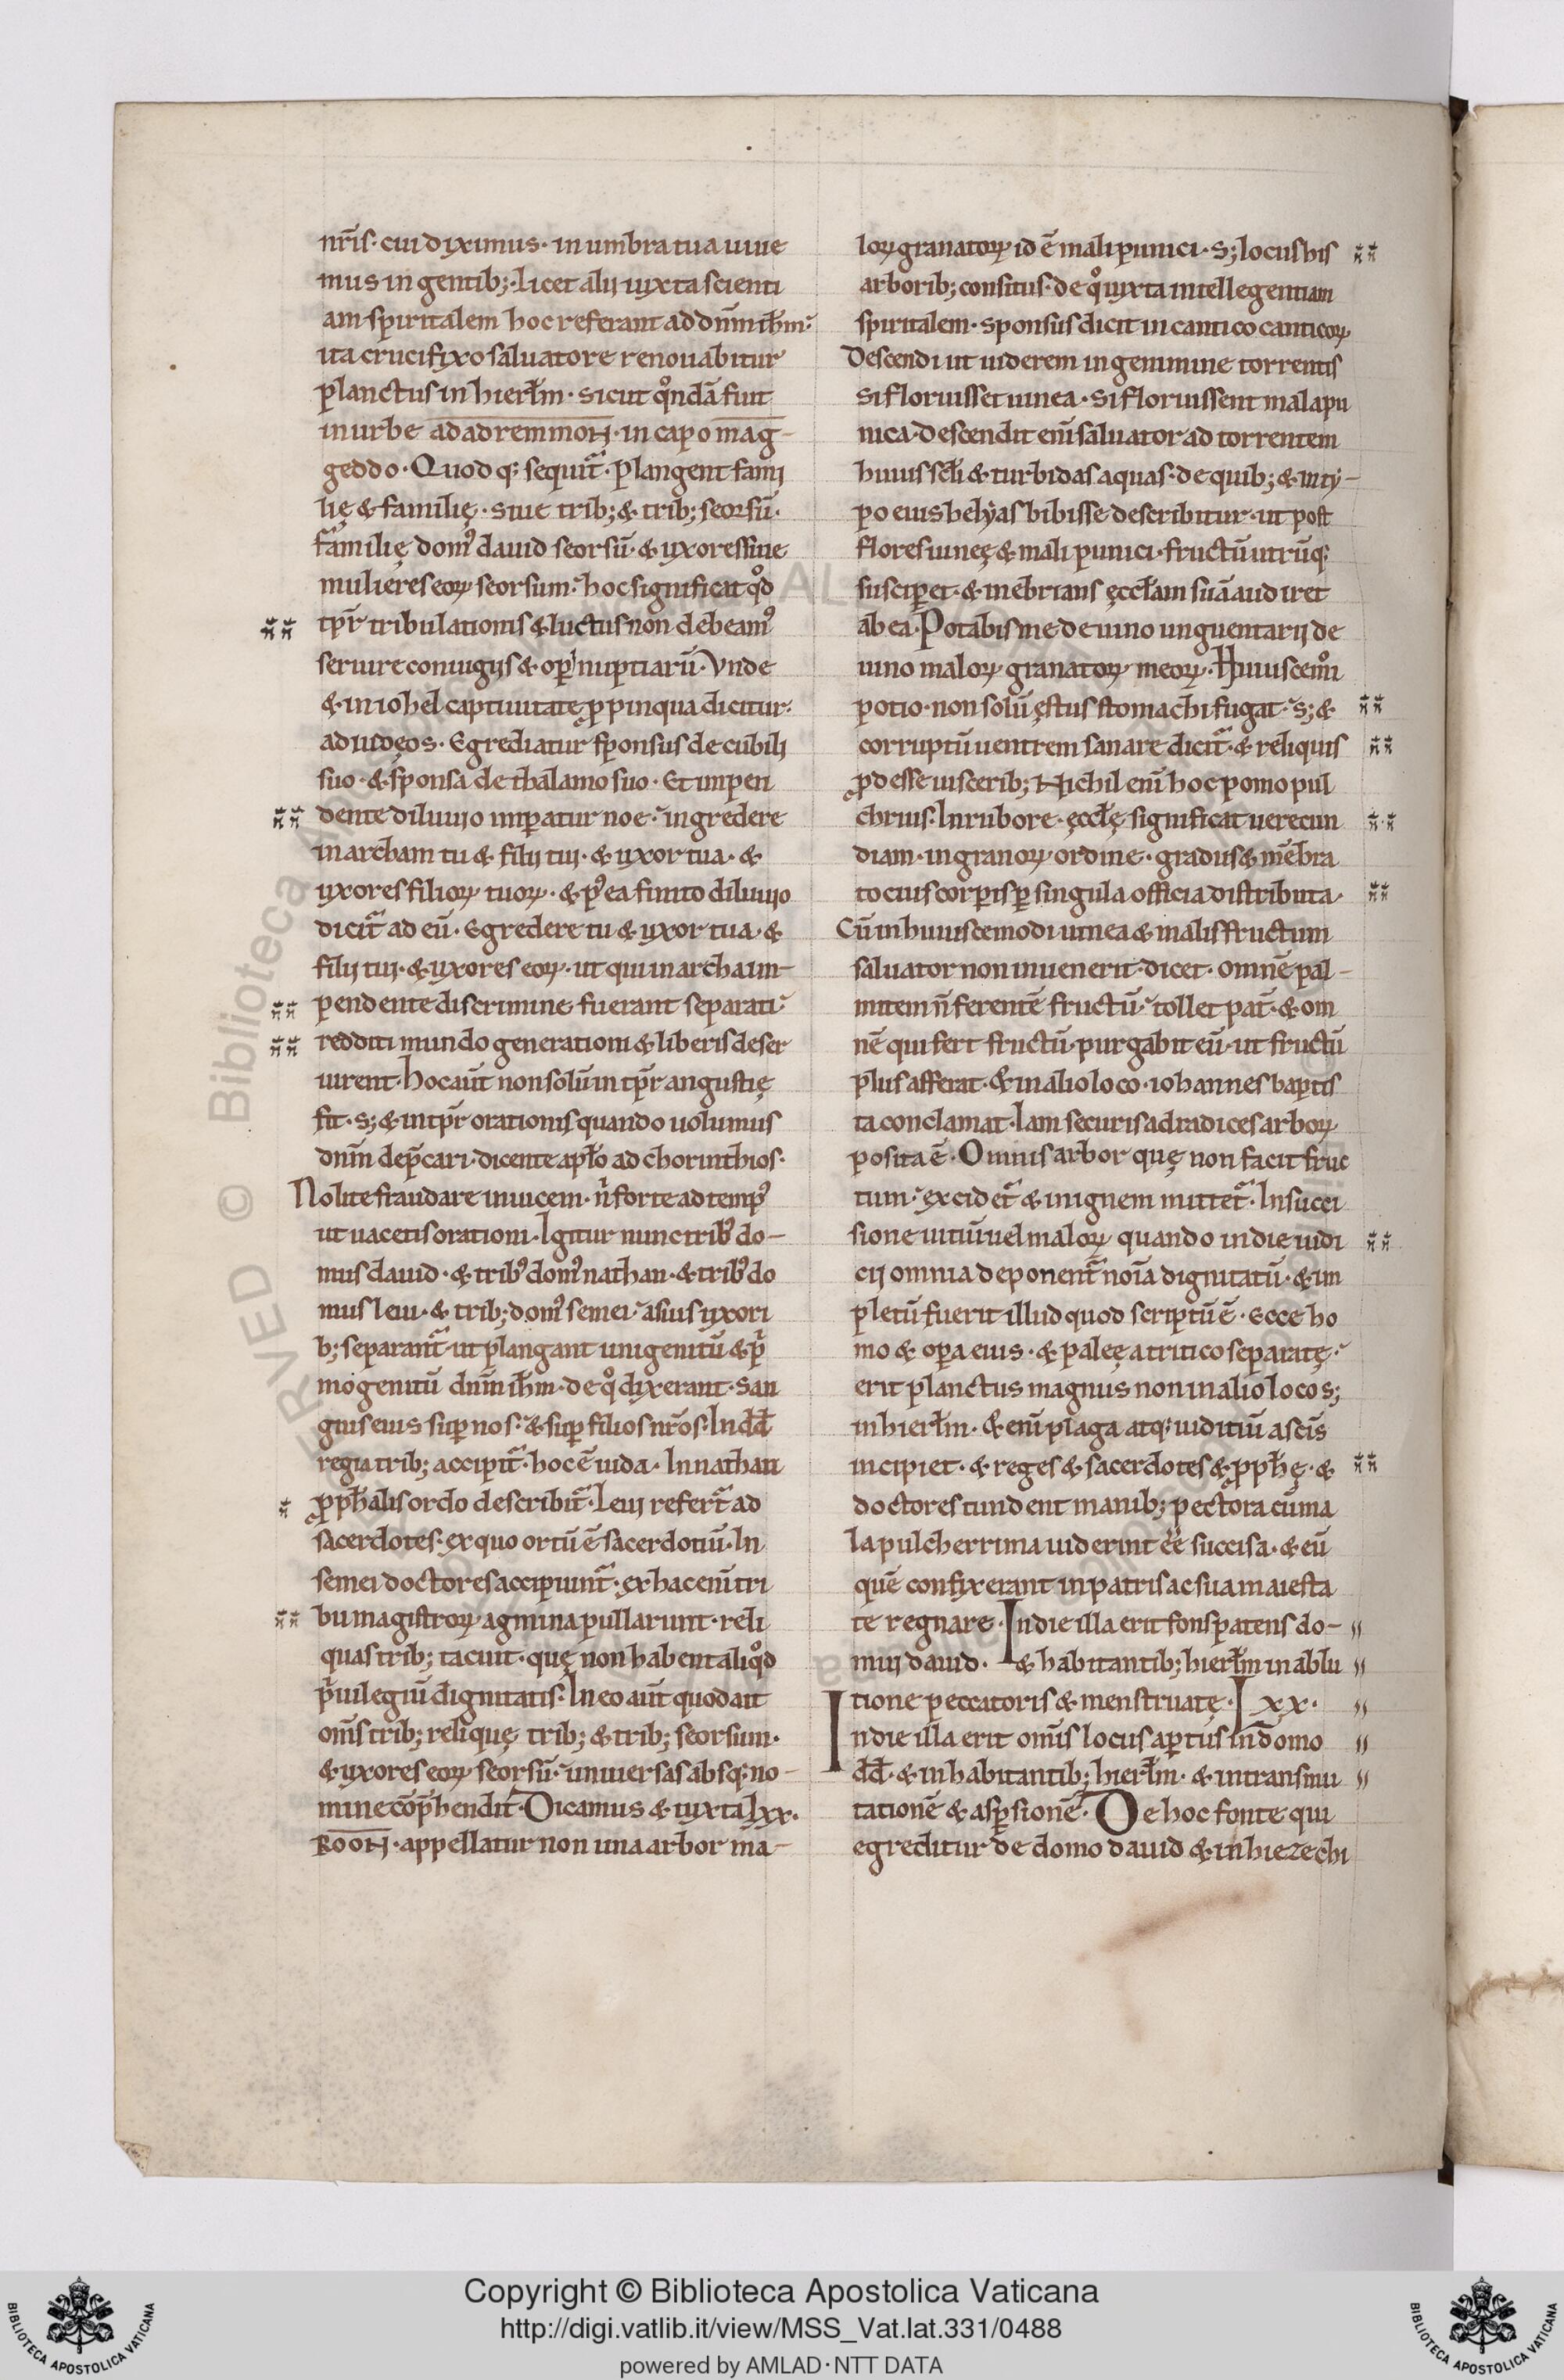 nr̅is· cui diximus· in umbra tua uiue
mus in gentib;· licet alii iuxta scienti
am spiritalem hoc referant ad dn̅m ih̅m·
ita crucifixo saluatore renouabitur
planctus in hierl̅m· sicut qͦndā fuit
in urbe adadremmon· in capo mag-
geddo· Quod q; sequit᷑· Plangent fami
lię & familię· siue trib; & trib; seorsū·
familię domꝰ dauid seorsū· & uxores siue
mulieres eoꝝ seorsum· hoc significat qͦd
tp̅r tribulationis & luctus non debeamꝰ
seruire coniugiis & oꝑi nuptiarū· Vnde
& in iohel captiuitate ꝓpinqua dicitur·
ad iudęos· Egrediatur sponsus de cubili
suo· & sponsa de thalamo suo· Et impen
dente diluuio imꝑatur noe· ingredere
in archam tu & filii tui· & uxor tua· &
uxores filioꝝ tuoꝝ· & pꝰea finito diluuio
dicit᷑ ad eū· Egredere tu & uxor tua· &
filii tui· & uxores eoꝝ· ut qui in archa im-
pendente discrimine fuerant separati·
redditi mundo generationi & liberis deser
uirent· hoc aut̅ non solū in tp̅r angustię
fit· s; & in tp̅r orationis quando uolumus
dn̅m dep̅cari· dicente apl̅o ad chorinthios·
Nolite fraudare inuicem· n̅ forte ad tempꝰ
ut uacetis orationi· Igitur nunc tribꝰ do-
mus dauid· & tribꝰ domꝰ nathan· & tribꝰ do
mus leui· & trib; domꝰ semei· a suis uxori
b; separant᷑ ut plangant unigenitū & p̅
mogenitū dn̅m ih̅m· de qͦ dixerant· San
guis eius suꝑ nos· & suꝑ filios nr̅os· In dd̅
regia trib; accipit᷑· hoc ē iuda· In nathan
ꝓph̅alis ordo describit᷑· Leui refert᷑ ad
sacerdotes· ex quo ortū ē sacerdotiū· In
semei doctores accipiunt᷑· ex hac enī tri
bu magistroꝝ agmina pullarunt· reli
quas trib; tacuit· quę non habent aliqͦd
p̅uilegiū dignitatis· In eo aut̅ quod ait
om̅s trib; reliquę trib; & trib; seorsum·
& uxores eoꝝ seorsū· uniuersas absq; no-
mine cōp̅hendit· Dicamus & iuxta lxx·
ROON· appellatur non una arbor ma-
loꝝ granatoꝝ id ē mali punici· S; locus his
arborib; consitus· de qͦ iuxta intellegentiam
spiritalem· sponsus dicit in cantico canticoꝝ
Descendi ut uiderem in gemmine torrentis
si floruisset uinea· si floruissent mala pu
nica· descendit enī saluator ad torrentem
huius scl̅i & turbidas aquas· de quib; & in ty-
po eius helyas bibisse describitur· ut post
flores uineę & mali punici· fructū utrūq;
susciꝑet· & inebrians ęccl̅am suā audiret
ab ea· Potabis me de uino unguentarii de
uino maloꝝ granatoꝝ meoꝝ· Huiuscemͦi
potio· non solū ęstus stomachi fugat· s; &
corruptū uentrem sanare dicit᷑· & reliquis
ꝓdesse uiscerib; Nichil enī hoc pomo pul
chrius· In rubore· ęccl̅ę significat uerecun
diam· in granoꝝ ordine· gradus & mēbra
tocius corꝑis ꝑ singula officia distributa·
Cū in huiuscemodi uinea & malis fructum
saluator non inuenerit· dicet· omnē pal-
mitem n̅ ferentē fructū· tollet pat̅· & om
nē qui fert fructū· purgabit eū· ut fructū
plus afferat· & in alio loco· iohannes baptis
ta conclamat· Iam securis ad radices arboꝝ
posita ē· Omnis arbor quę non facit fruc
tum· excidet᷑ & in ignem mittet᷑· In succi
sione uitiū uel maloꝝ quando in die iudi
cii omnia deponent᷑ noīa dignitatū· & im
pletū fuerit illud quod scriptū ē· Ecce ho
mo & oꝑa eius· & paleę a tritico separatę·
erit planctus magnus non in alio loco s;
in hierl̅m· & enī plaga atq; iuditiū a scīs
incipiet· & reges & sacerdotes & ꝓph̅ę· &
doctores tundent manib; pectora cū ma
la pulcherrima uiderint ee̅ succisa· & eū
quē confixerant in patris ac sua maiesta
te regnare· In die illa erit fons patens do-
mui dauid· & habitantib; hierl̅m in ablu
tione peccatoris & menstruatę· Lxx·
In die illa erit om̅is locus aꝑtus in domo
dd̅· & inhabitantib; hierl̅m· & in transmu
tationē & asꝑsionē· De hoc fonte qui
egreditur de domo dauid & in hiezechi
© Biblioteca Apostolica Vaticana ALL RIGHTS RESERVED
Copyright © Biblioteca Apostolica Vaticana
http://digi.vatlib.it/view/MSS_Vat.lat.331/0488
powered by AMLAD·NTT DATA
BIBLIOTECA APOSTOLICA VATICANA
BIBLIOTECA APOSTOLICA VATICANA